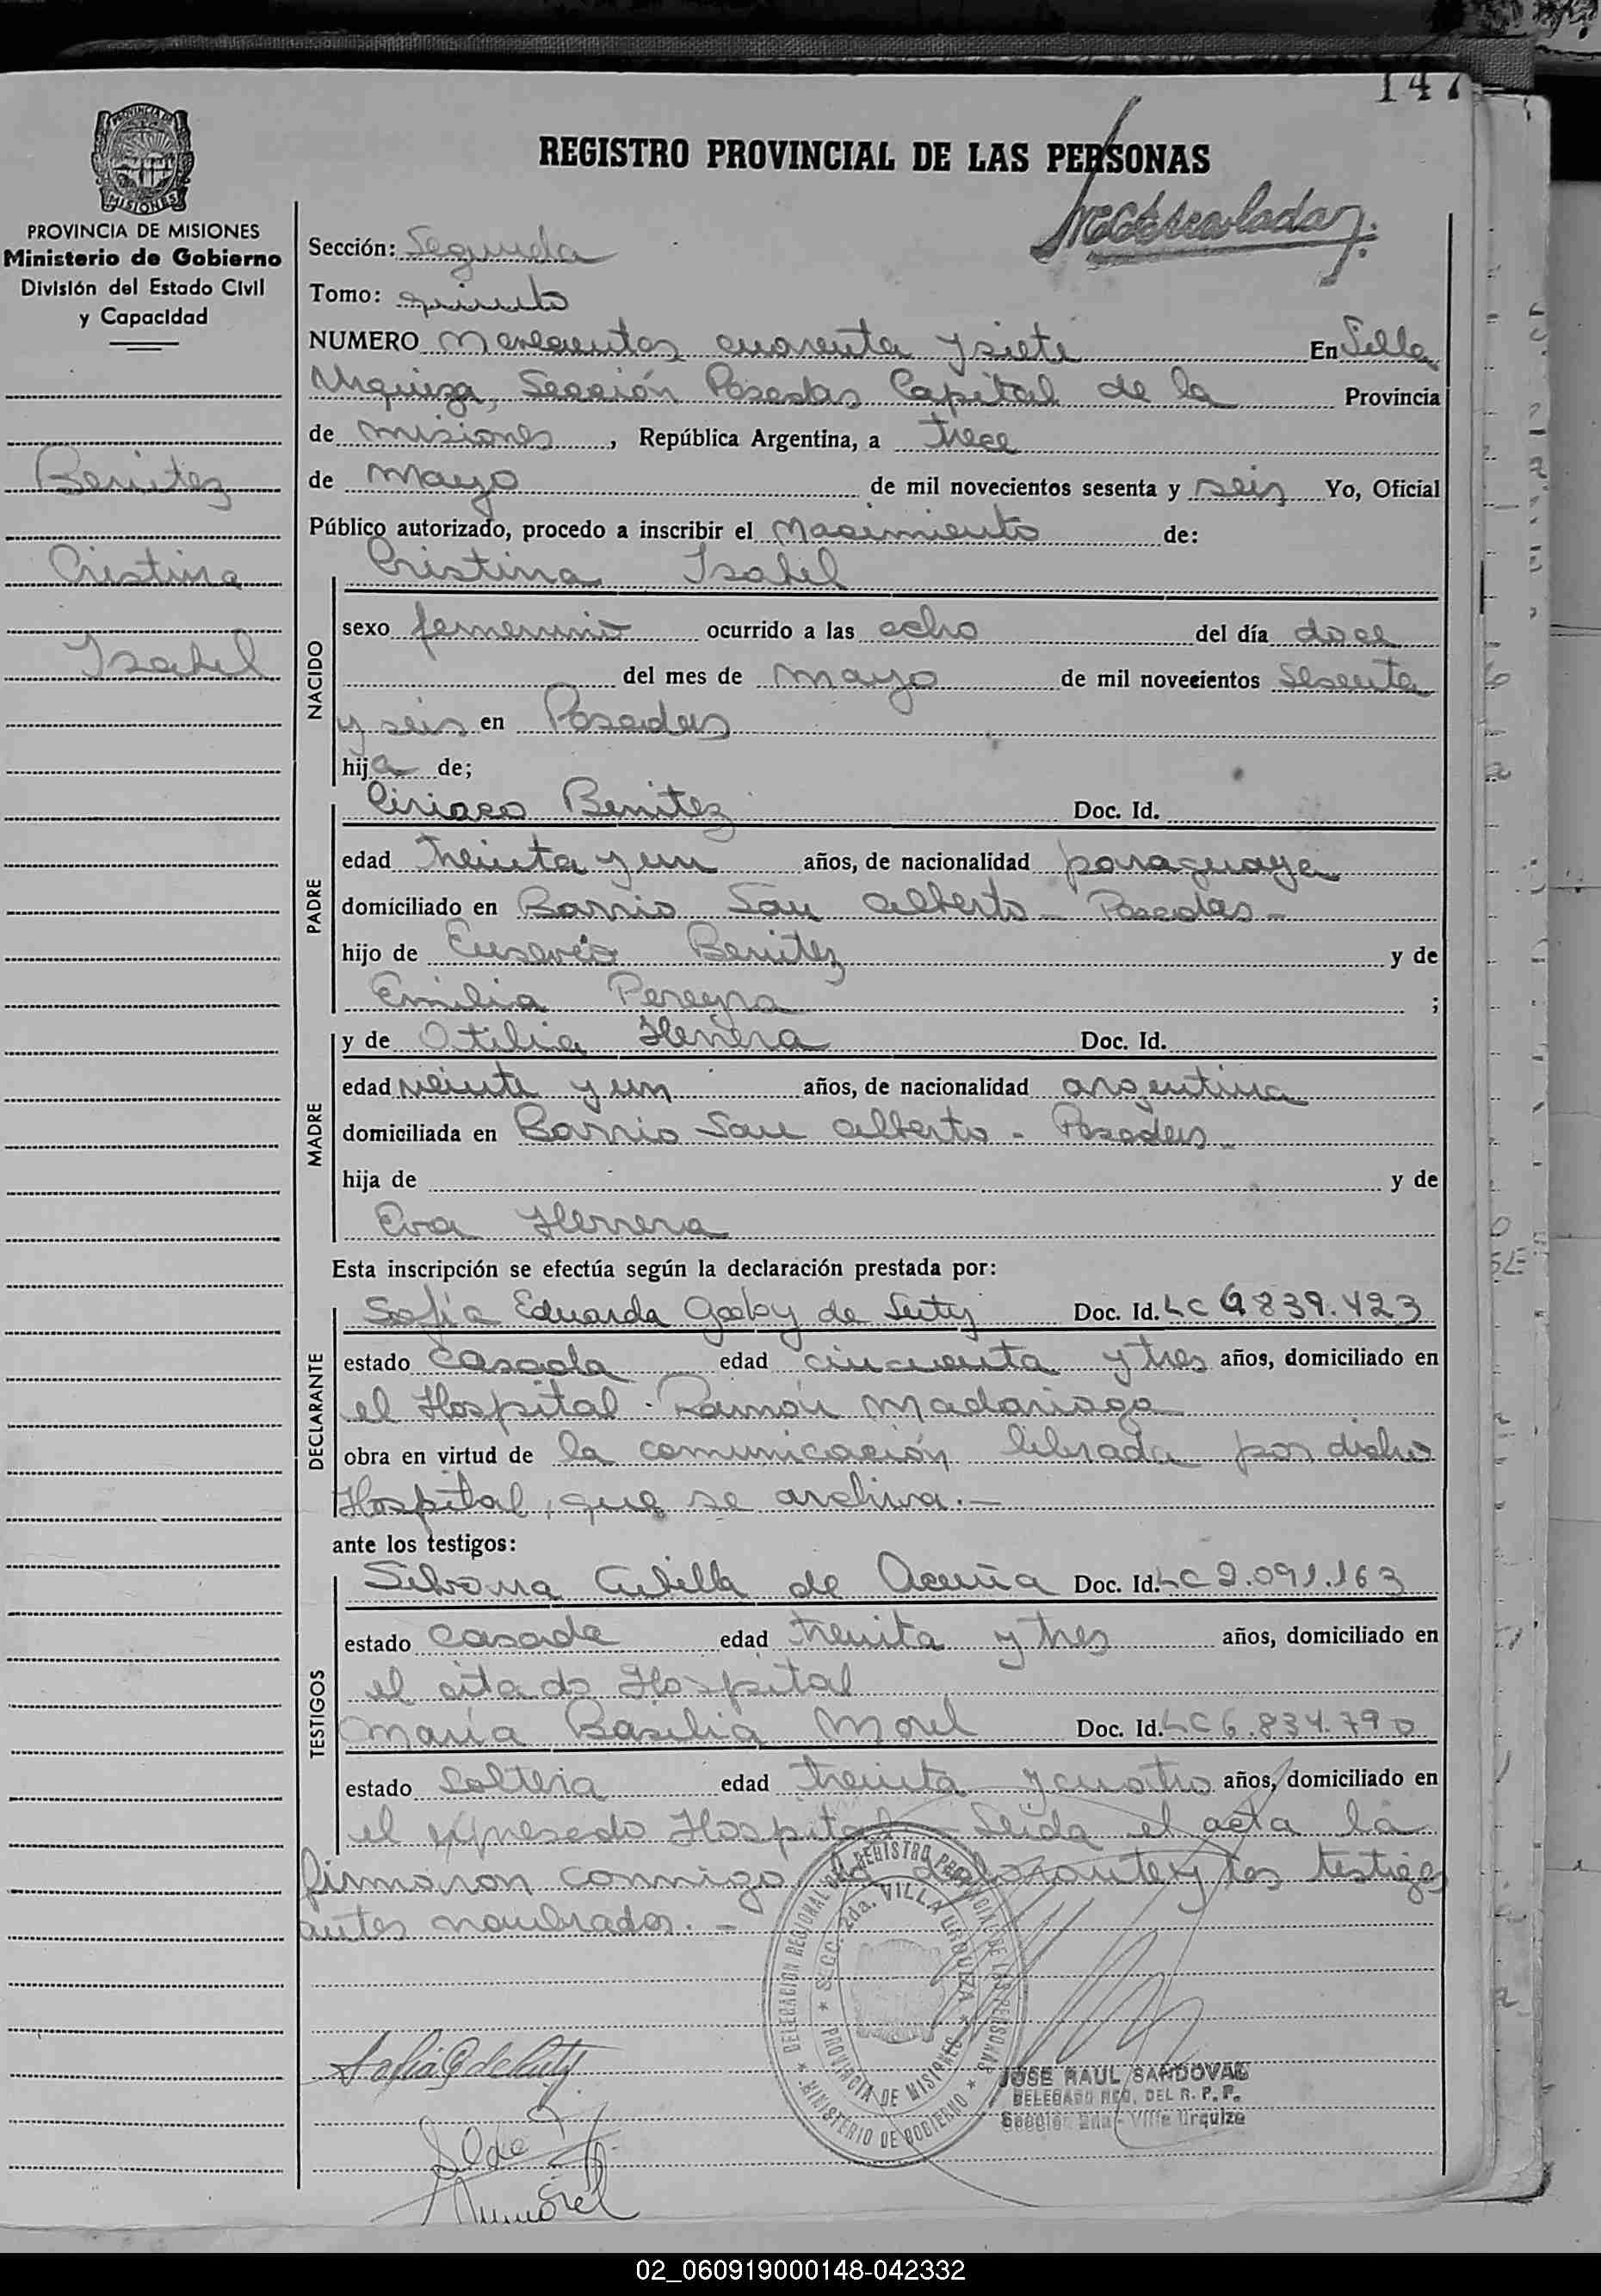 147
REGISTRO PROVINCIAL DE LAS PERSONAS
PROVINCIA DE MISIONES
Ministerio de Gobierno
División del Estado Civil
y Capacidad
Benitez
Cristina
Isabel
Sección: Segunda
Tomo: quinto
NUMERO novecientos cuarenta y siete En Villa
Urquiza, Sección Posadas Capital de la Provincia
de misiones, República Argentina, a trece
de mayo de mil novecientos sesenta y seis Yo, Oficial
Público autorizado, procedo a inscribir el Nacimiento de:
Cristina Isabel
NACIDO
sexo femenino ocurrido a las ocho del día doce
del mes de mayo de mil novecientos sesenta
y seis en Posadas
hija de;
Ciriaco Benitez Doc. Id.
PADRE
edad treinta y un años, de nacionalidad paraguaya
domiciliado en Barrio San Alberto - Posadas -
hijo de Eusevio Benitez y de
Emilia Pereyra ;
y de Otilia Herrera Doc. Id.
MADRE
edad veinte y un años, de nacionalidad argentina
domiciliada en Barrio San Alberto - Posadas -
hija de y de
Eva Herrera
Esta inscripción se efectúa según la declaración prestada por:
Sofía Eduarda de Doc. Id. LC 9839.423
DECLARANTE
estado casada edad cincuenta y tres años, domiciliado en
el Hospital Ramón Madariaga
obra en virtud de la comunicación librada por dicho
Hospital, que se archiva.-
ante los testigos:
de Acuña Doc. Id. LC 2.091.163
TESTIGOS
estado casada edad treinta y tres años, domiciliado en
el citado Hospital
María Basilia Morel Doc. Id. LC 6.834.790
estado soltera edad treinta y cuatro años, domiciliado en
el expresado Hospital - Leida el acta la
firmaron conmigo la declarante y los testigos
antes nombrados.-
DELEGACION REGIONAL DEL REGISTRO PROVINCIAL DE LAS PERSONAS
SECC. 2da. VILLA URQUIZA
PROVINCIA DE MISIONES
MINISTERIO DE GOBIERNO
JOSE RAUL SANDOVAL
DELEGADO REG. DEL R. P. P.
Sección 2da - Villa Urquiza
02_060919000148-042332